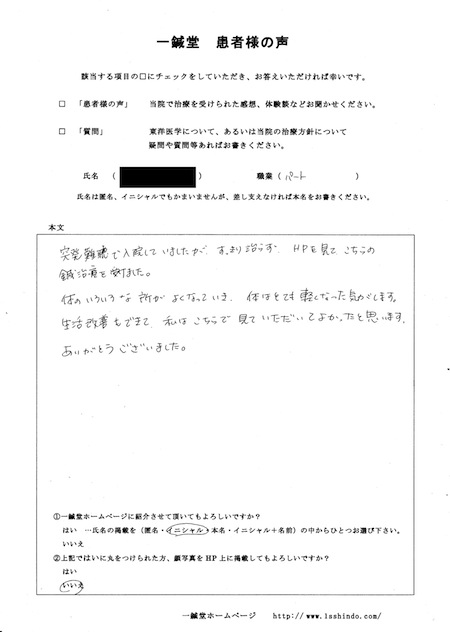 一鍼堂 患者様の声
該当する項目の□にチェックをしていただき、お答えいただければ幸いです。
□ 「患者様の声」 当院で治療を受けられた感想、体験談などお聞かせください。
□ 「質問」 東洋医学について、あるいは当院の治療方針について
疑問や質問等あればお書きください。
氏名 ( ) 職業 ( パート )
氏名は匿名、イニシャルでもかまいませんが、差し支えなければ本名をお書きください。
本文
突発難聴で入院していましたが、あまり治らず、HPを見て こちらの
鍼治療を受けました。
体のいろいろな所がよくなっていき、体はとても軽くなった気がします。
生活改善もできて、私はこちらで見ていただいてよかったと思います。
ありがとうございました。
①一鍼堂ホームページに紹介させて頂いてもよろしいですか？
はい …氏名の掲載を（匿名・イニシャル・本名・イニシャル＋名前）の中からひとつお選び下さい。
いいえ
②上記ではいに丸をつけられた方、顔写真をHP上に掲載してもよろしいですか？
はい
いいえ
一鍼堂ホームページ http://www.1sshindo.com/